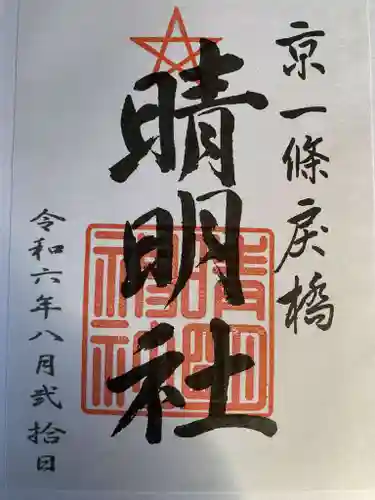 京一條戻橋
晴明社
晴明神社
令和六年八月弐拾日